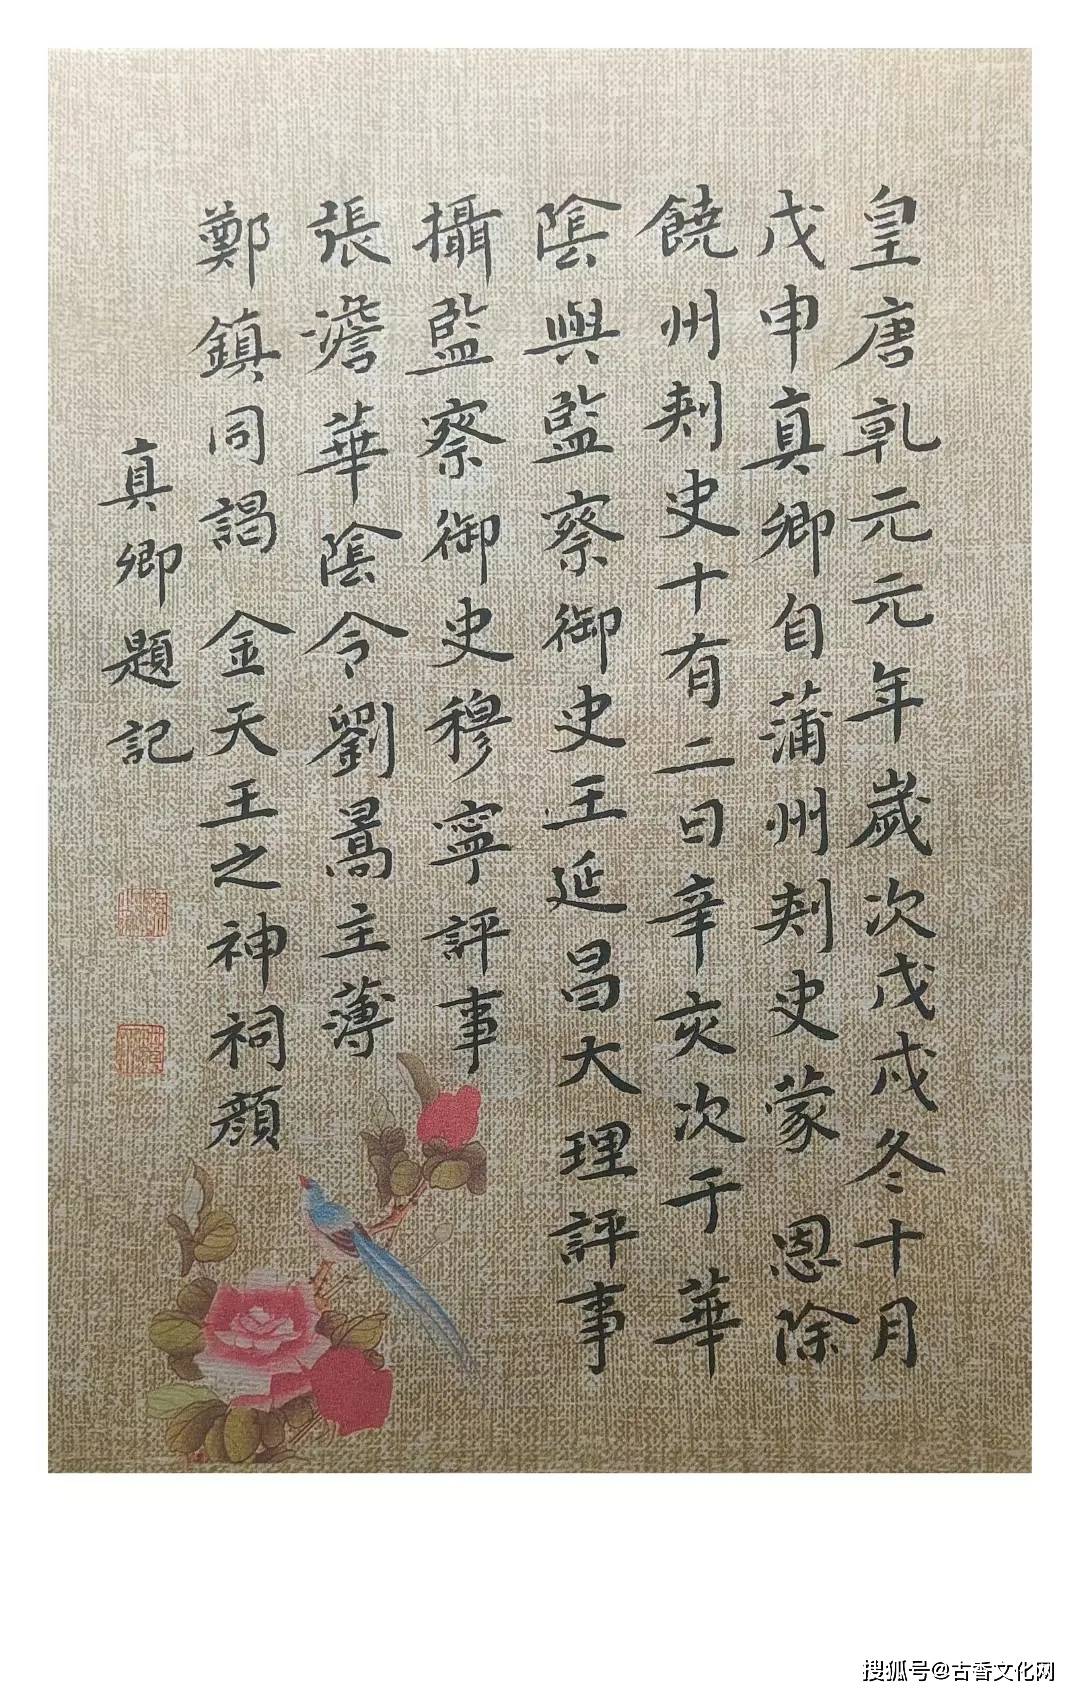 皇唐乹元元年歲次戊戌冬十月
戊申真卿自蒲州刾史蒙恩除
饒州刾史十有二日辛亥次于華
陰與監察御史王延昌大理評事
攝監察御史穆寧評事
張澹華陰令劉暠主薄
鄭鎮同謁金天王之神祠顔
真卿題記
搜狐号@古香文化网